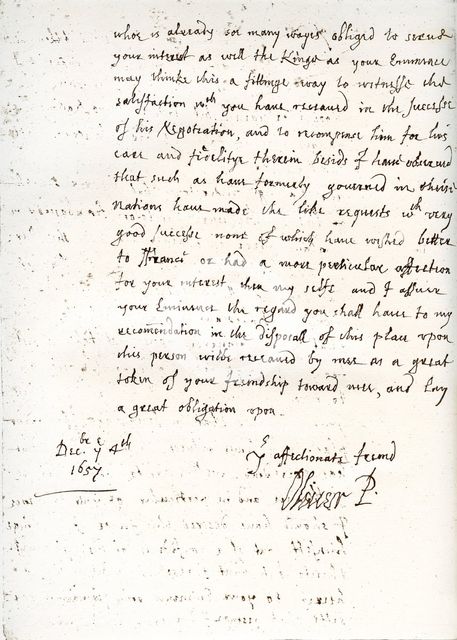 whoe is already soe many wayes obliged to serve
your interest as well the Kings as your Eminence
may thinke this a fittinge way to witnesse the
satisfaction wth you have receaved in the successe
of his Negotiation, and to recompense him for his
care and fidelitye therein besids I have observed
that such as have formerly governed in theise
Nations have made the like requests wth very
good successe none of which have wished better
to ffrance or had a more perticular affection
for your interest then my selfe and I assure
your Eminence the regard you shall have to my
recomendation in the disposall of this place upon
this person wilbe receaved by mee as a great
token of your freindship toward mee, and lay
a great obligation upon.
Yr affectionate freind
Oliver P.
Decbre ye 4th
1657